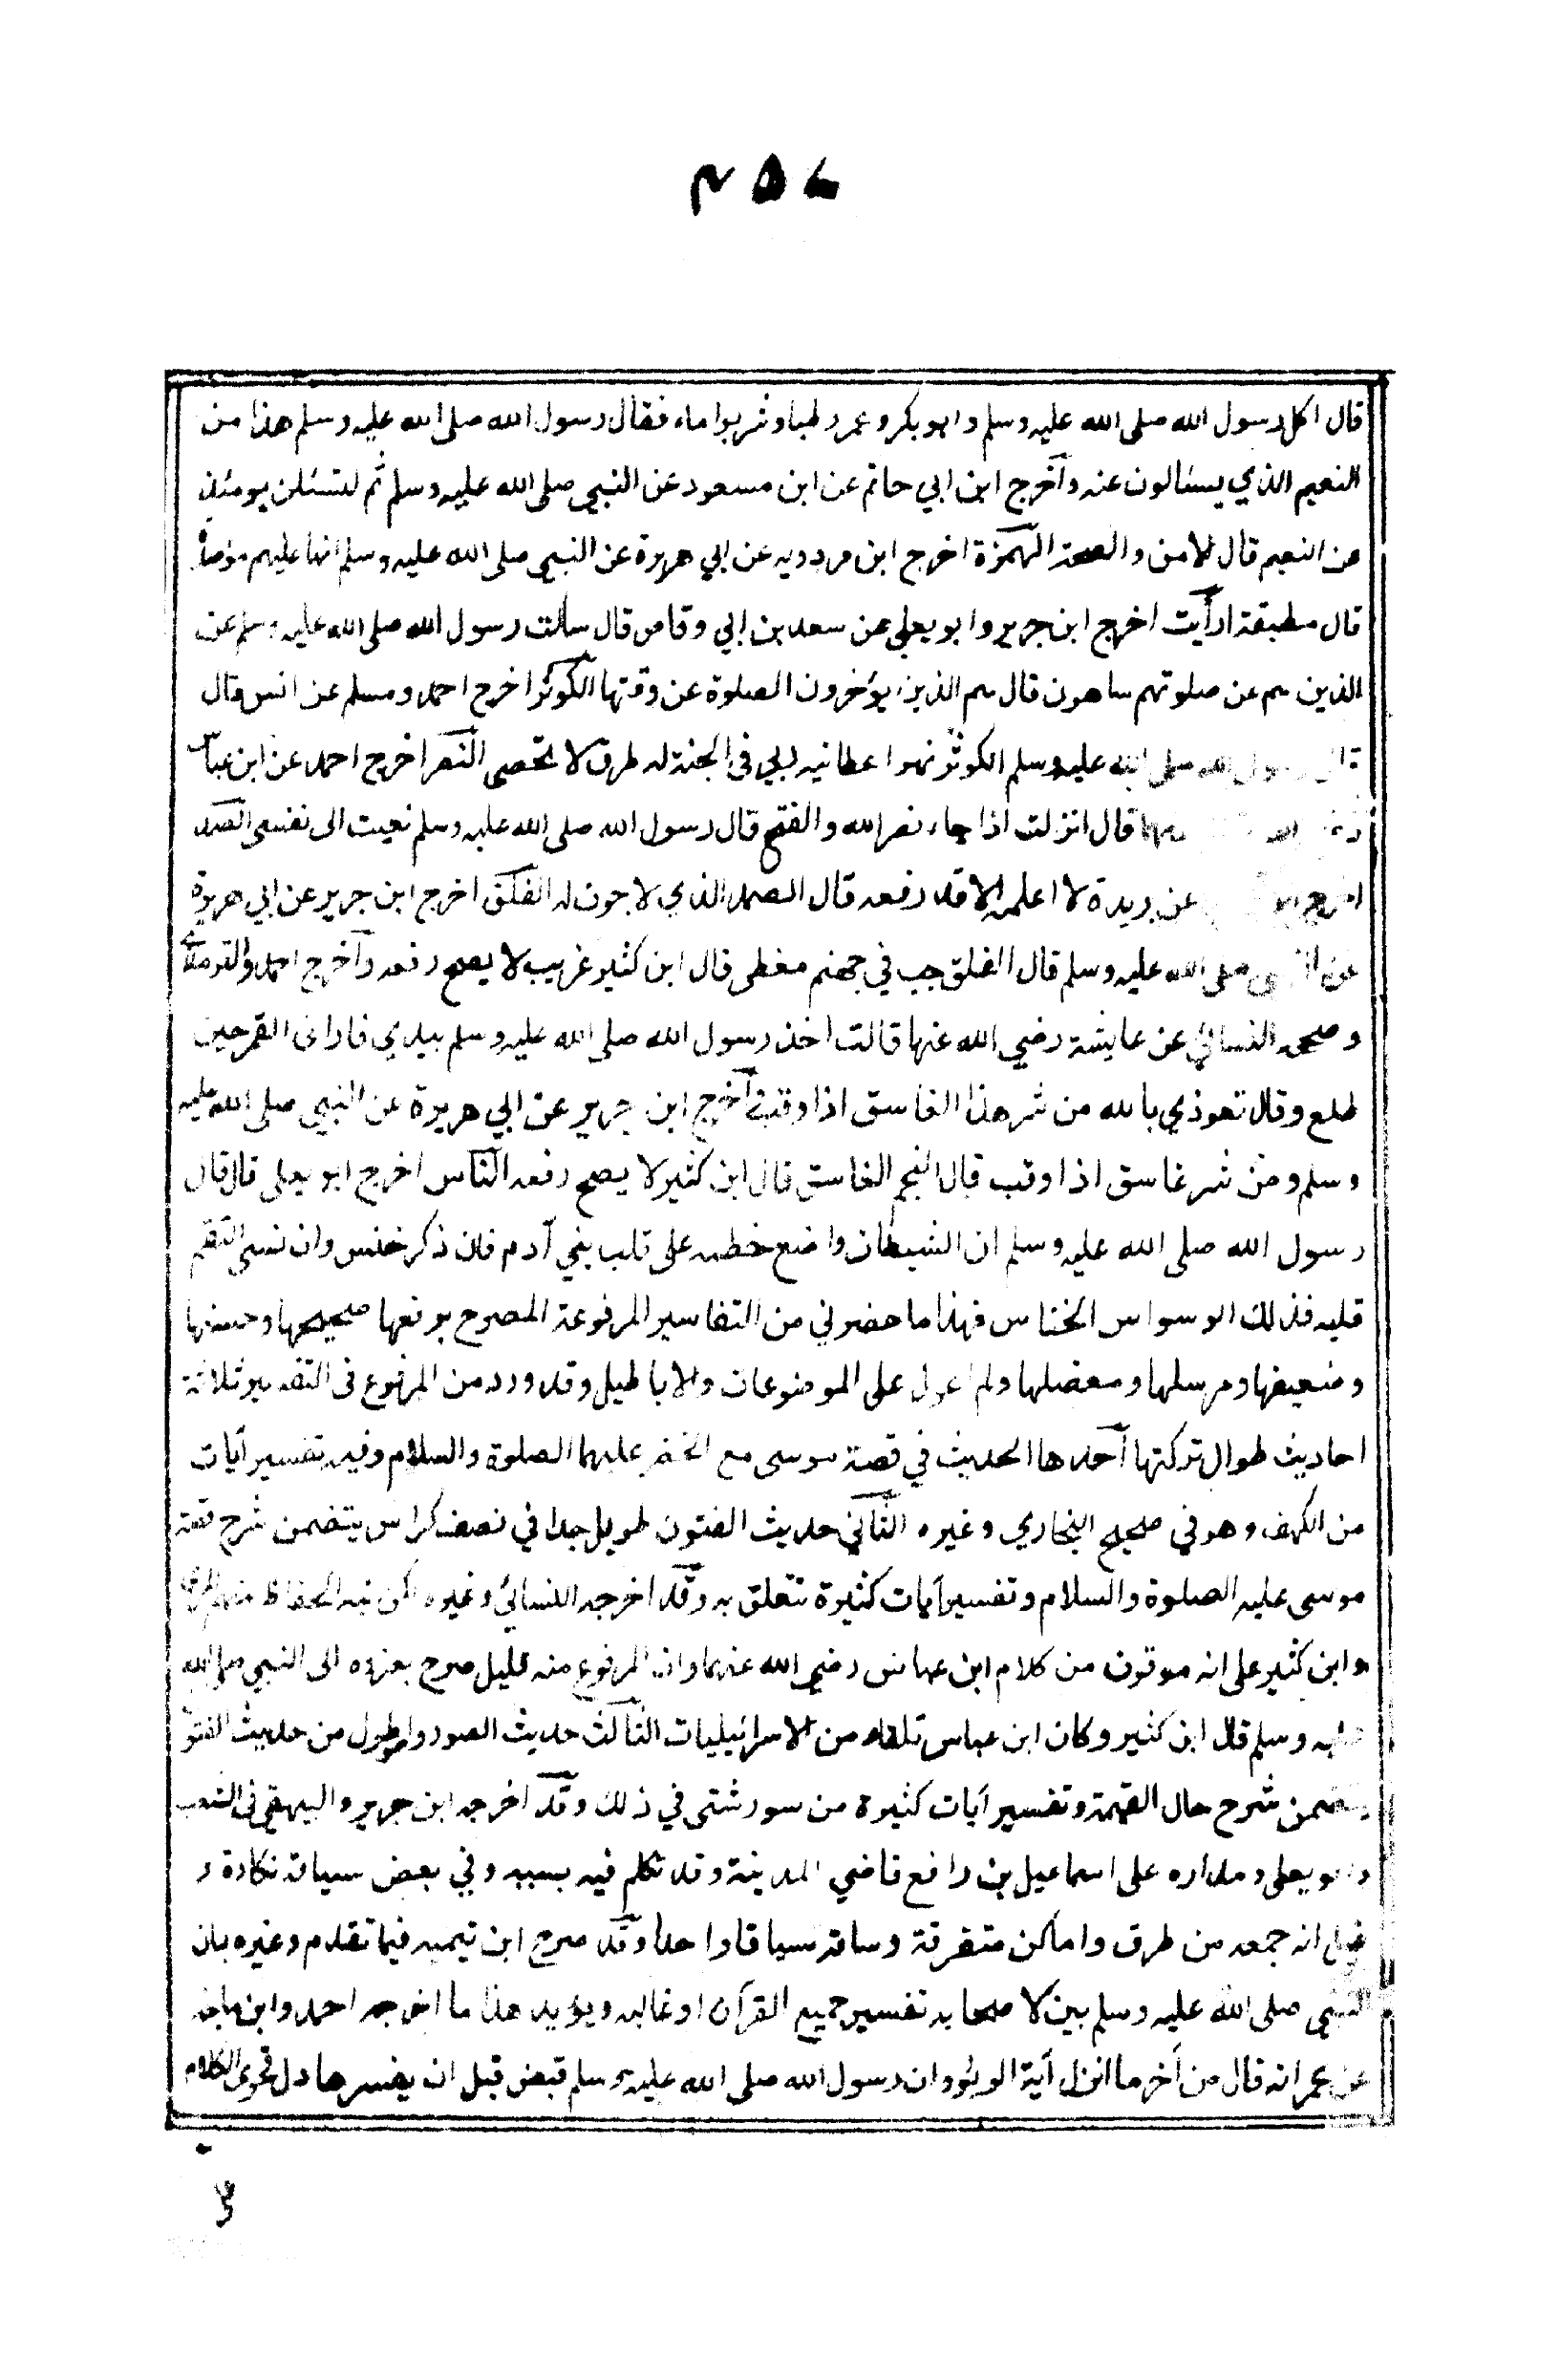 ۴۵۷
قال اكل رسول الله صلى الله عليه وسلم وابو بكر وعمر رطبا وشربوا ماء فقال رسول الله صلى الله عليه وسلم هذا من
النعيم الذي يسئالون عنه وآخرج ابن ابي حاتم عن ابن مسعود عن النبي صلى الله عليه وسلم ثم لتسئلن يومئذ
عن النعيم قال الامن والصحة الهمزة اخرج ابن مردويه عن ابي هريرة عن النبي صلى الله عليه وسلم انها عليهم موصدة
قال مطبقة ارأيت اخرج ابن جرير وابو يعلى عن سعد بن ابي وقاص قال سألت رسول الله صلى الله عليه وسلم عن
الذين هم عن صلوتهم ساهون قال هم الذين يؤخرون الصلوة عن وقتها الكوثر اخرج احمد ومسلم عن انس قال
قال رسول الله صلى الله عليه وسلم الكوثر نهر اعطانيه ربي في الجنة له طرق لا تحصى النصر اخرج احمد عن ابن عباس
قال انزلت اذا جاء نصر الله والفتح قال رسول الله صلى الله عليه وسلم نعيت الى نفسى الصمد
اخرج عن بريدة لا اعلمه الا قد رفعه قال الصمد الذي لا جوف له الفلق اخرج ابن جرير عن ابي هريرة
عن النبي صلى الله عليه وسلم قال الفلق جب في جهنم مغطى قال ابن كثير غريب لا يصح رفعه وآخرج احمد والترمذي
وصححه النسائي عن عايشة رضي الله عنها قالت اخذ رسول الله صلى الله عليه وسلم بيدي فارانى القمر حين
طلع وقال تعوذي بالله من شر هذا الغاسق اذا وقب وآخرج ابن جرير عن ابي هريرة عن النبي صلى الله عليه
وسلم ومن شر غاسق اذا وقب قال النجم الغاسق قال ابن كثير لا يصح رفعه الناس اخرج ابو يعلى قال قال
رسول الله صلى الله عليه وسلم ان الشيطان واضع خطمه على قلب بني آدم فان ذكر خنس وان نسى التقم
قلبه فذلك الوسواس الخناس فهذا ما حضرني من التفاسير المرفوعة المصرح برفعها صحيحها وحسنها
وضعيفها ومرسلها ومعضلها ولم اعول على الموضوعات والاباطيل وقد ورد من المرفوع فى التفسير ثلاثة
احاديث طوال تركتها آحدها الحديث في قصة موسى مع الخضر عليهما الصلوة والسلام وفيه تفسير آيات
من الكهف وهو في صحيح البخاري وغيره الثاني حديث الفتون طويل جدا في نصف كراس يتضمن شرح قصة
موسى عليه الصلوة والسلام وتفسير آيات كثيرة تتعلق به وقد اخرجه النسائي وغيره لكن نبه الحفاظ منهم المزي
وابن كثير على انه موقوف من كلام ابن عباس رضي الله عنهما وان المرفوع منه قليل صرح بعزوه الى النبي صلى الله
عليه وسلم قال ابن كثير وكان ابن عباس تلقاه من الاسرائيليات الثالث حديث الصور وهو اطول من حديث الفتون
يتضمن شرح حال القيمة وتفسير آيات كثيرة من سور شتى في ذلك وقد اخرجه ابن جرير والبيهقي فى الشعب
وابو يعلى ومداره على اسماعيل بن رافع قاضي المدينة وقد تكلم فيه بسببه وفي بعض سياقه نكارة و
قيل انه جمعه من طرق واماكن متفرقة وساقه سياقا واحدا وقد صرح ابن تيميه فيما تقدم وغيره بان
النبي صلى الله عليه وسلم بين لاصحابه تفسير جميع القرآن او غالبه ويؤيد هذا ما اخرجه احمد وابن ماجه
عن عمر انه قال من آخر ما انزل آية الربو وان رسول الله صلى الله عليه وسلم قبض قبل ان يفسرها دل فحوى الكلام